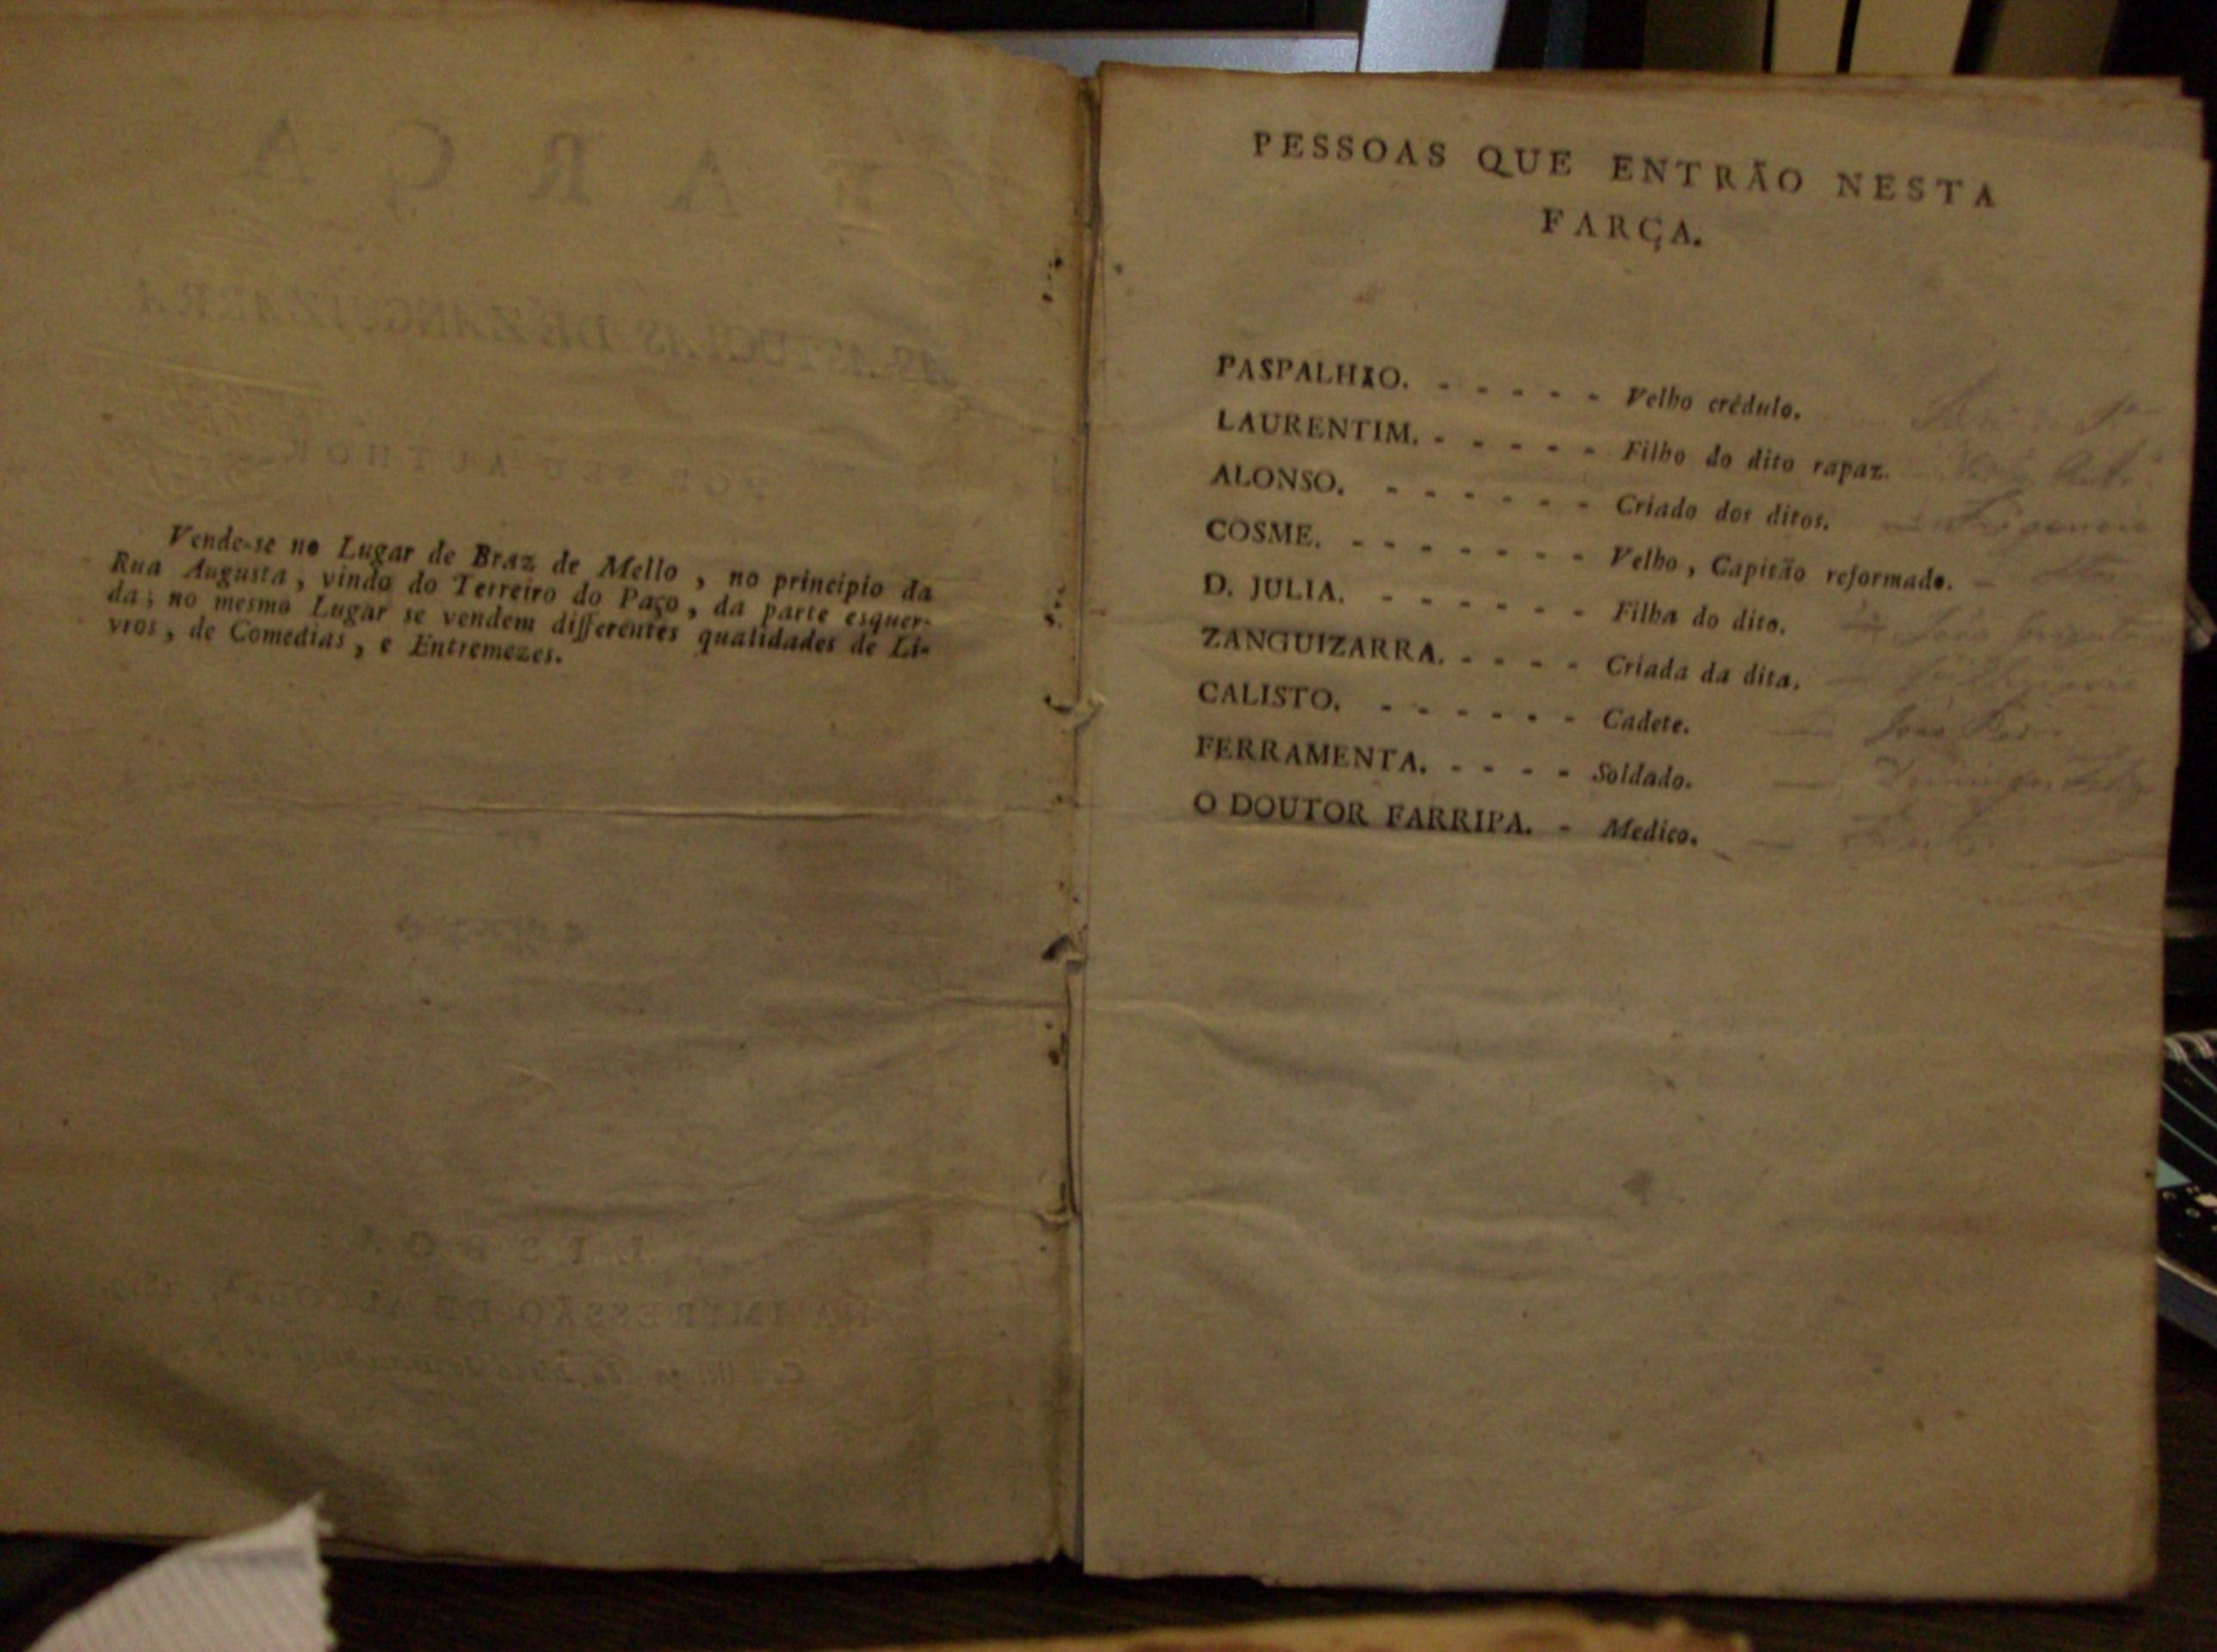 FARÇA
AS ASTUCIAS DE ZANGUIZARRA
POR SEU AUTHOR
Vende-se no Lugar de Braz de Mello , no principio da
Rua Augusta , vindo do Terreiro do Paço , da parte esquer-
da ; no mesmo Lugar se vendem differentes qualidades de Li-
vros , de Comedias , e Entremezes.
LISBOA:
NA IMPRESSÃO DE
PESSOAS QUE ENTRÃO NESTA
FARÇA.
PASPALHÃO. - - - - - Velho crédulo.
LAURENTIM. - - - - - Filho do dito rapaz.
ALONSO. - - - - - - Criado dos ditos.
COSME. - - - - - - - Velho , Capitão reformado.
D. JULIA. - - - - - - Filha do dito.
ZANGUIZARRA. - - - - Criada da dita.
CALISTO. - - - - - - Cadete. João
FERRAMENTA. - - - - Soldado.
O DOUTOR FARRIPA. - Medico.